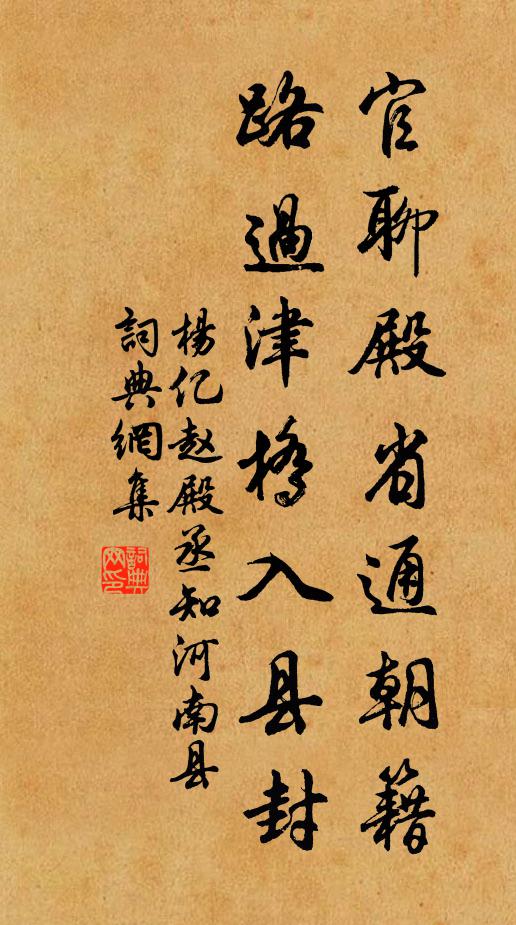 官聊殿省通朝籍
路過津橋入县封
楊亿赵殿丞知河南县
詞典網集
詞典网印